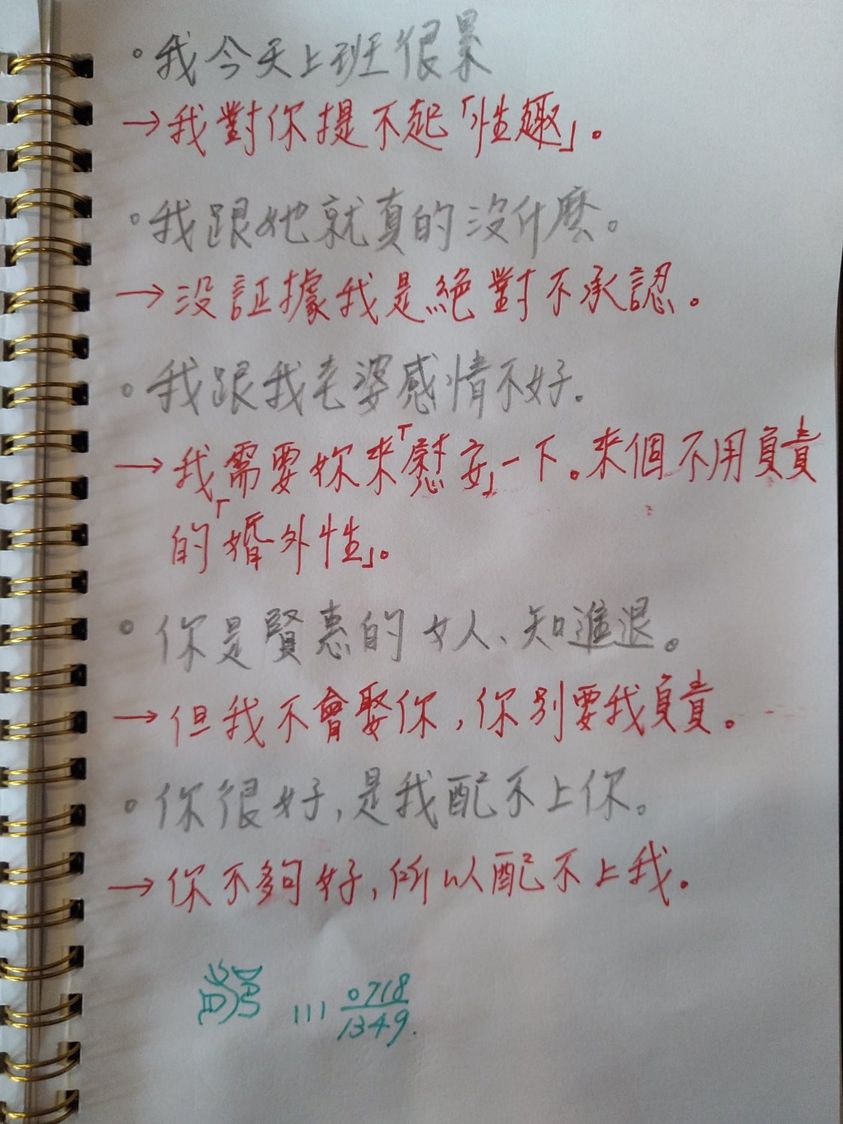 。我今天上班很累
→我對你提不起「性趣」。
。我跟她就真的沒什麼。
→沒証據我是絕對不承認。
。我跟我老婆感情不好.
→我需要妳來「慰安」一下。來個不用負責
的「婚外性」。
。你是賢惠的女人、知進退。
→但我不會娶你,你別要我負責。
。你很好,是我配不上你。
→你不夠好,所以配不上我.
111 0718
1349.